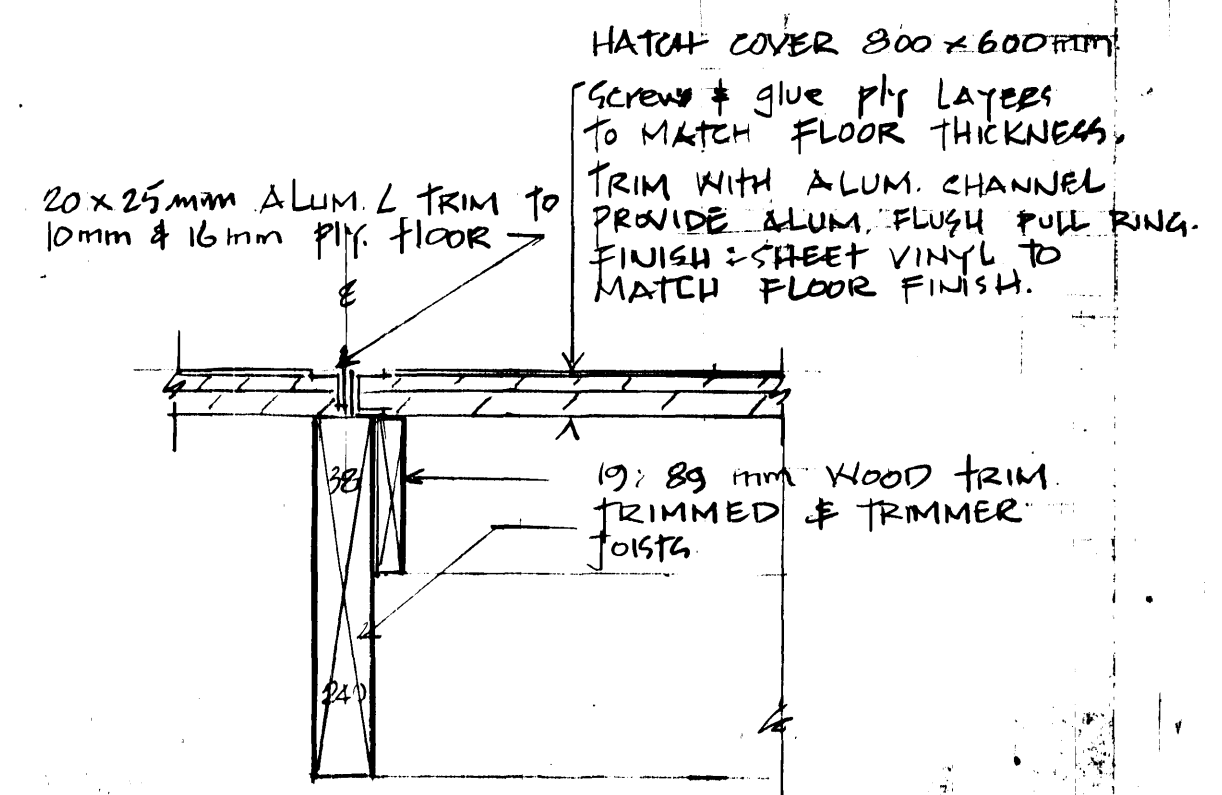 HATCH COVER 800 x 600 mm
Screw & glue ply LAYERS
TO MATCH FLOOR THICKNESS.
TRIM WITH ALUM. CHANNEL
PROVIDE ALUM. FLUSH PULL RING.
FINISH : SHEET VINYL TO
MATCH FLOOR FINISH.
20 x 25 mm ALUM. L TRIM TO
10mm & 16mm Ply. floor
19 : 89 mm WOOD TRIM
TRIMMED & TRIMMER
JOISTS
38
240